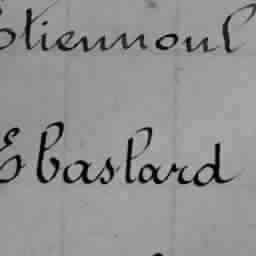 Etiennoul
Ebaslard